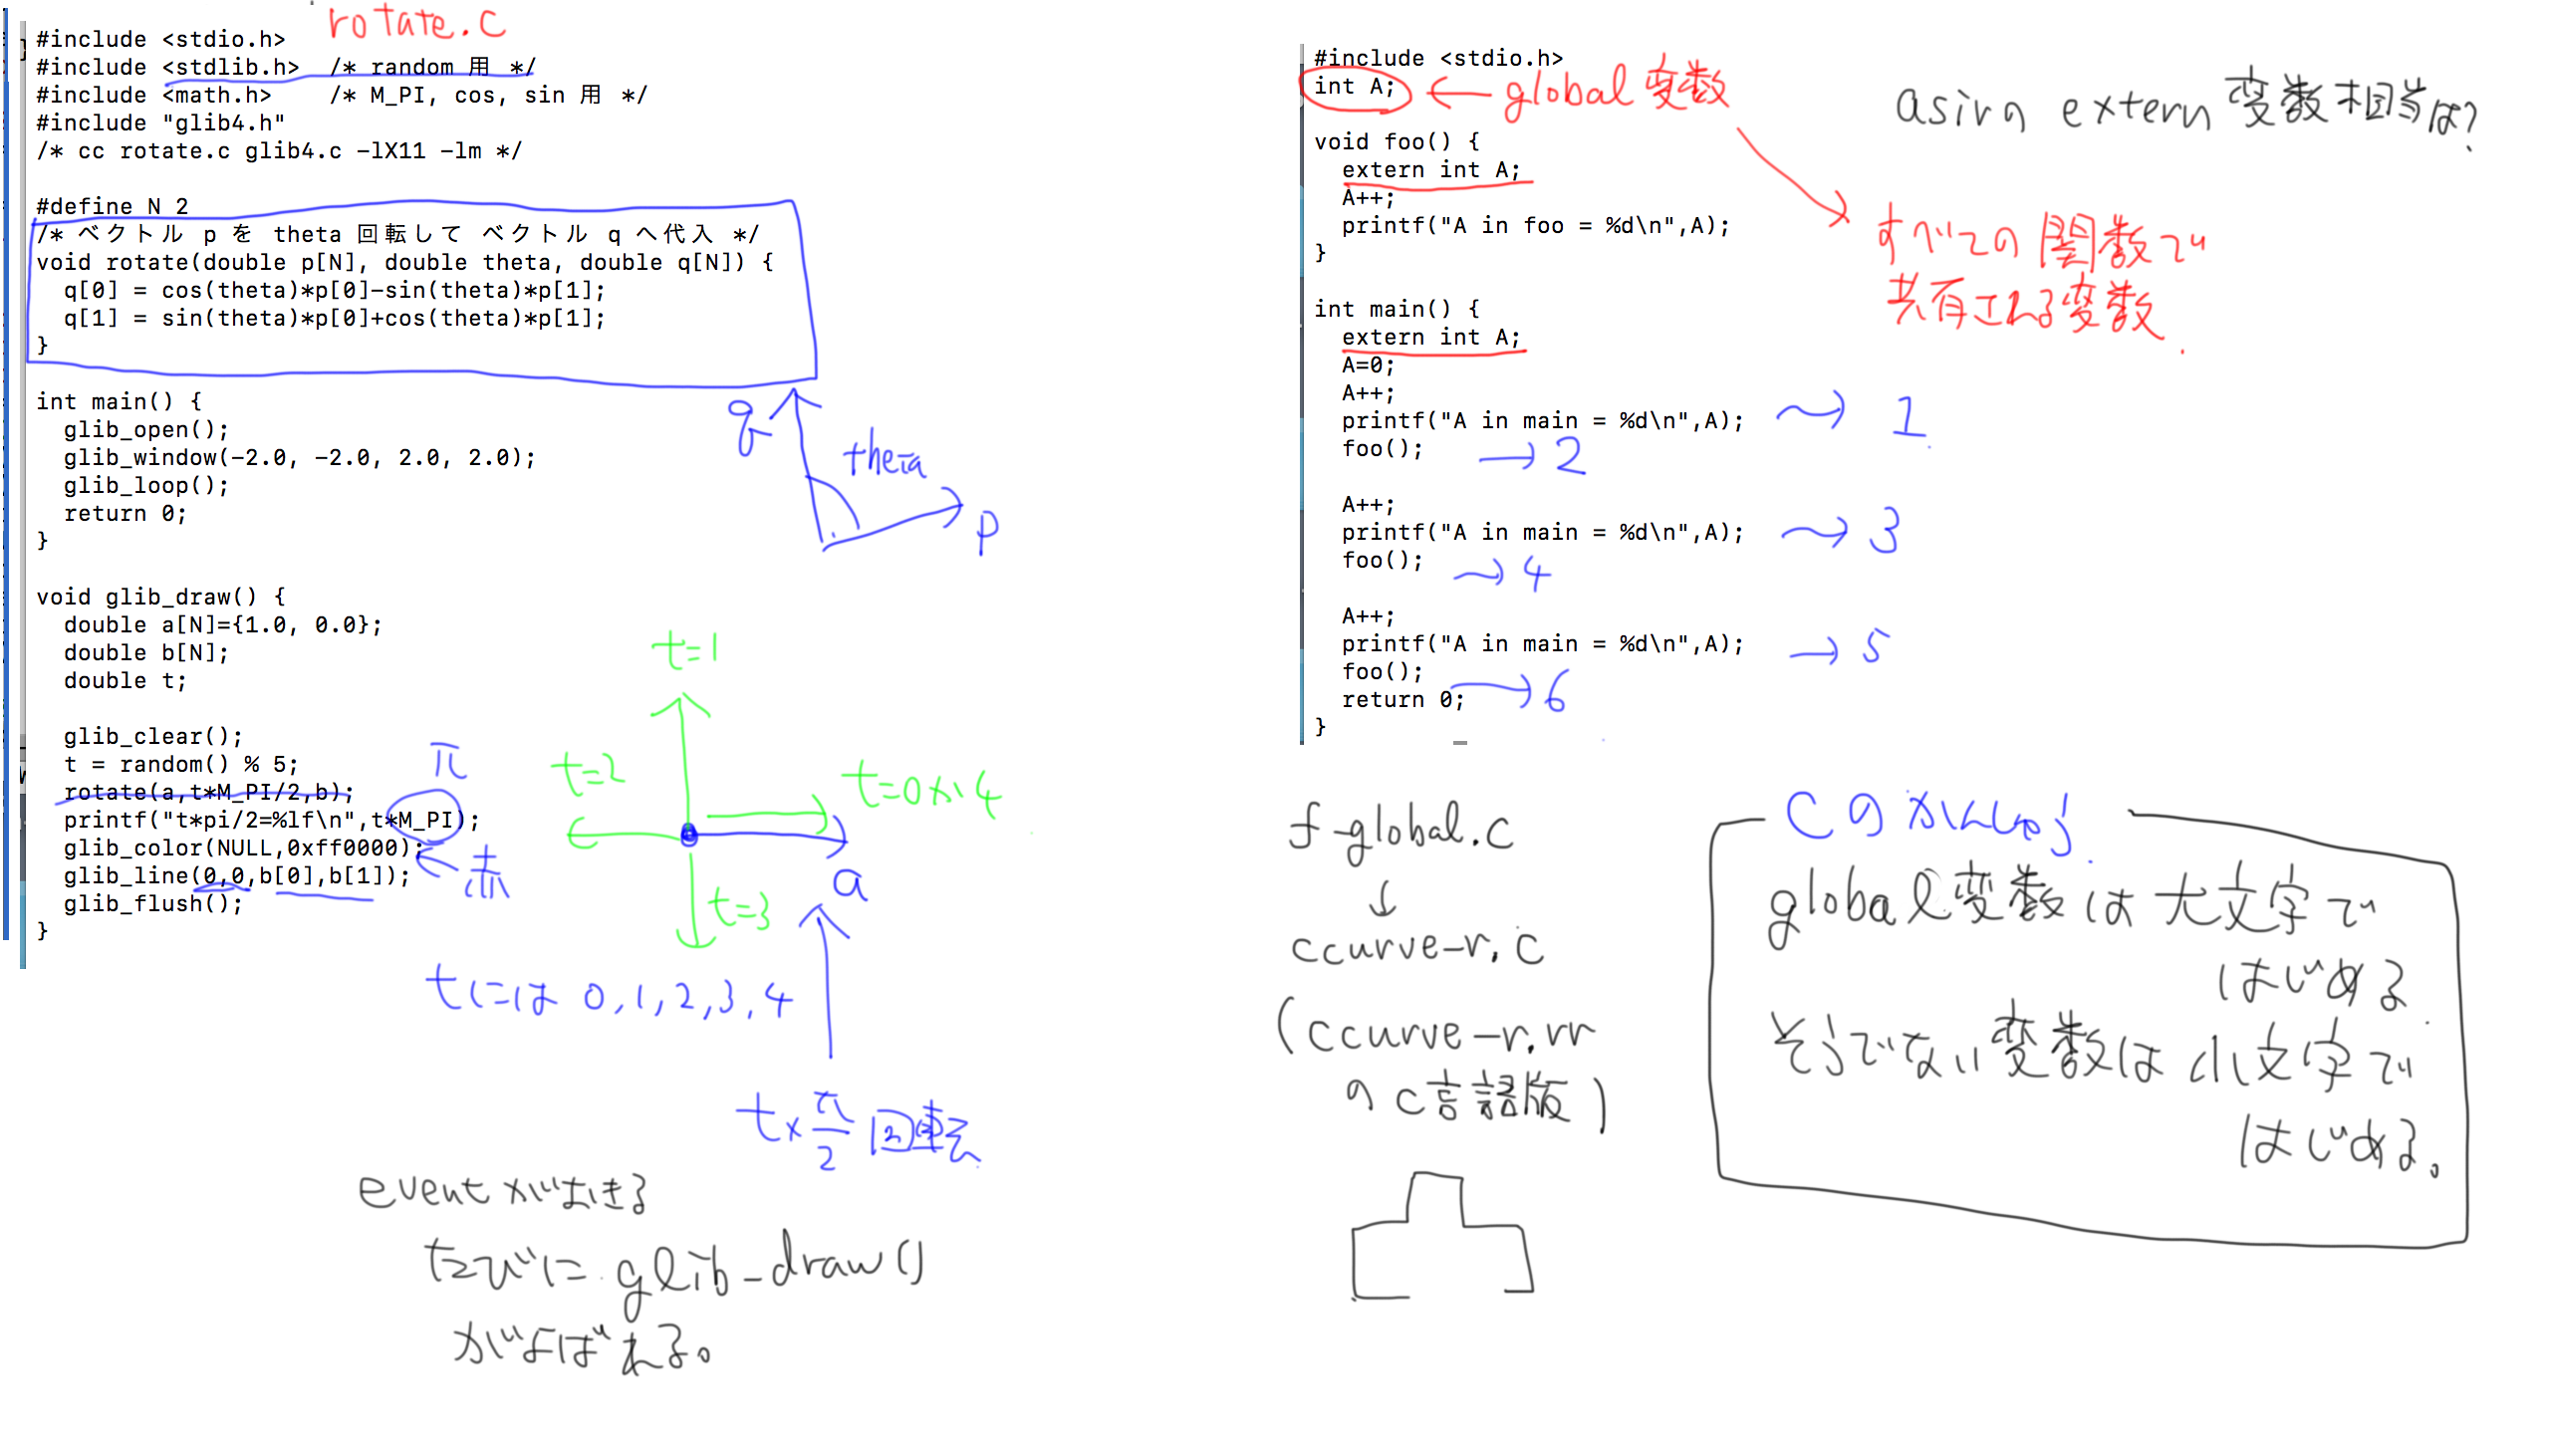 rotate.c
#include <stdio.h>
#include <stdlib.h>  /* random 用 */
#include <math.h>    /* M_PI, cos, sin 用 */
#include "glib4.h"
/* cc rotate.c glib4.c -lX11 -lm */
#define N 2
/* ベクトル p を theta 回転して ベクトル q へ代入 */
void rotate(double p[N], double theta, double q[N]) {
  q[0] = cos(theta)*p[0]-sin(theta)*p[1];
  q[1] = sin(theta)*p[0]+cos(theta)*p[1];
}
int main() {
  glib_open();
  glib_window(-2.0, -2.0, 2.0, 2.0);
  glib_loop();
  return 0;
}
q
theta
p
void glib_draw() {
  double a[N]={1.0, 0.0};
  double b[N];
  double t;
  glib_clear();
  t = random() % 5;
  rotate(a,t*M_PI/2,b);
  printf("t*pi/2=%lf\n",t*M_PI);
  glib_color(NULL,0xff0000);
  glib_line(0,0,b[0],b[1]);
  glib_flush();
}
π
赤
t=1
t=2
t=0か4
t=3
a
tには 0,1,2,3,4
t×π/2 回転
eventがおきる
たびに glib-draw()
がよばれる。
#include <stdio.h>
int A;
← global 変数
void foo() {
  extern int A;
  A++;
  printf("A in foo = %d\n",A);
}
int main() {
  extern int A;
  A=0;
  A++;
  printf("A in main = %d\n",A);
1
  foo();
→ 2
  A++;
  printf("A in main = %d\n",A);
3
  foo();
→ 4
  A++;
  printf("A in main = %d\n",A);
→ 5
  foo();
  return 0;
→ 6
}
asirの extern 変数相当は?
すべての 関数で
共有される変数.
f-global.c
↓
ccurve-r.c
(ccurve-r.rr
のC言語版)
Cのかんしゅう
global変数は大文字で
はじめる.
そうでない変数は小文字で
はじめる。